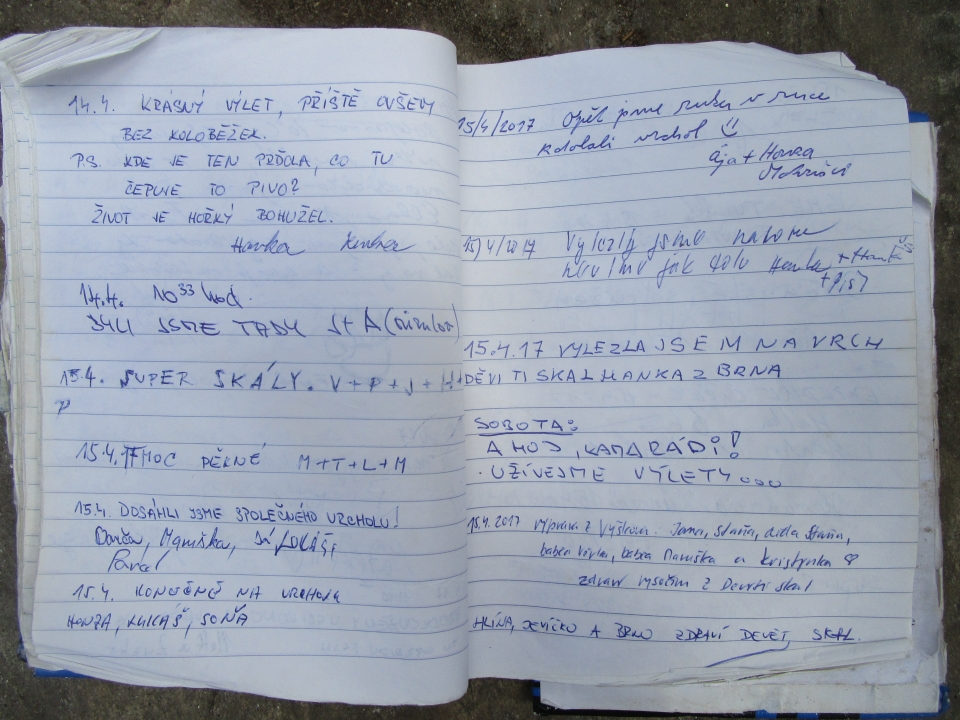 14.4. KRÁSNÝ VÝLET, PŘÍŠTĚ OVŠEM
BEZ KOLOBĚŽEK.
P.S. KDE JE TEN PRĎOLA, CO TU
ČEPUJE TO PIVO?
ŽIVOT JE HOŘKÝ BOHUŽEL.
Hanka
14.4. 10 33 hod.
BYLI JSME TADY S+A
15.4. SUPER SKÁLY. V+P+J+H+
P
15.4.17 MOC PĚKNÉ M+T+L+M
15.4. DOSÁHLI JSME SPOLEČNÉHO VRCHOLU!
Barča, Maruška,
Pavel
15.4. KONEČNĚ NA VRCHOLU
HONZA, LUKÁŠ, SOŇA
15/4/2017 Opět jsme ruku v ruce
zdolali vrchol
Ája + Honza
15/4/2017 Vylezli jsme nahoru
nevíme jak dolu Honza + Hank
+ Píšť
15.4.17 VYLEZLA JSEM NA VRCH
DĚVITI SKAL HANKA Z BRNA
SOBOTA:
AHOJ, KAMARÁDI!
UŽÍVEJME VÝLETY...
15.4.2017 výprava z Vyškova. Jana, Staňa, děda Staňa,
babča Věrka, babča Maruška a Kristýnka
zdraví vysočinu z Devíti skal
HLÍNA, JEVÍČKO A BRNO ZDRAVÍ DEVĚT SKAL.